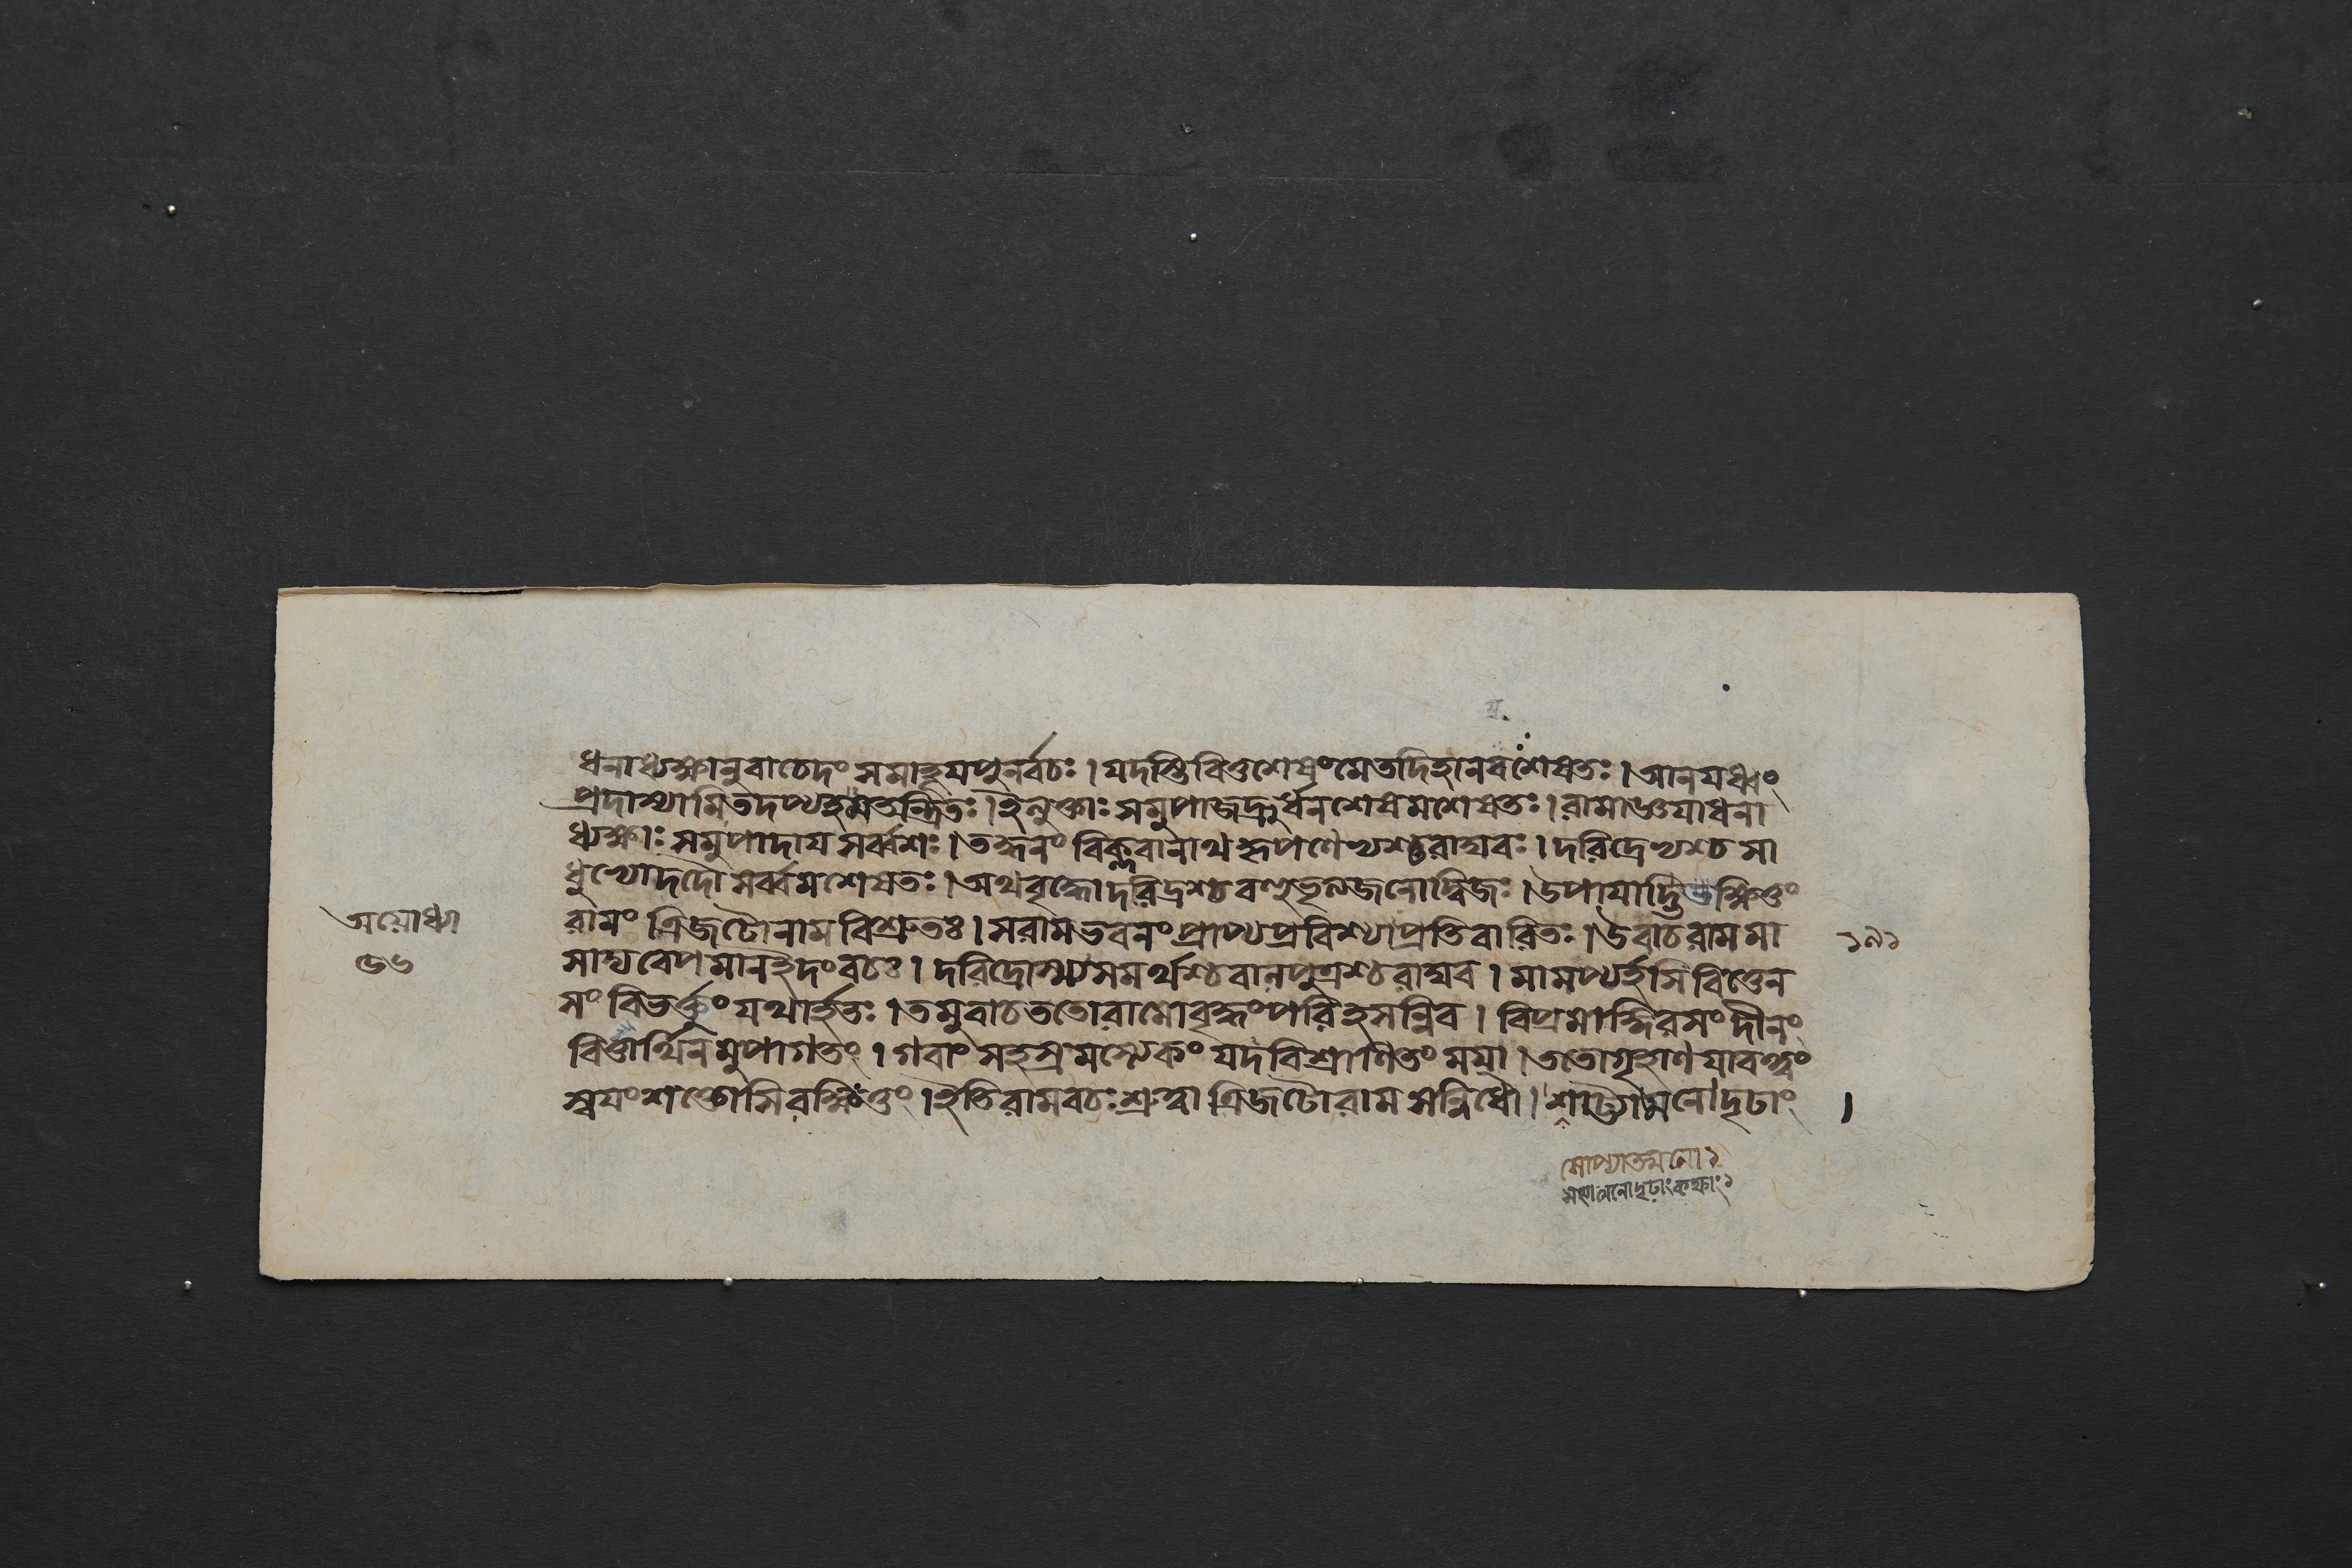 ধনাধ্যক্ষানুবাচেদং সমাহূযপুনর্বচঃ । যদস্তিবিত্তশেষংমেতদিহানবশেষতঃ । আনযধ্বং
প্রদাস্যামিতদপ্যহমতন্দ্রিতঃ । ইত্যুক্তাঃ সমুপাজহ্রুর্ধনশেষমশেষতঃ । রামাজ্ঞযাধনা
ধ্যক্ষাঃ সমুপাদায সর্ব্বশঃ । তদ্ধনং বিক্লবানাথকৃপণেভ্যশ্চরাঘবঃ । দরিদ্রেভ্যশ্চ সা
ধুভ্যোদদৌ সর্ব্বমশেষতঃ । অথবৃদ্ধোদরিদ্রশ্চ বহুভৃত্যজনোদ্বিজঃ । উপাযাদ্ভিক্ষিতুং
রামং ত্রিজটোনাম বিশ্রুতঃ । সরামভবনং প্রাপ্যপ্রবিশ্যাপ্রতিবারিতঃ । উবাচরামমা
সাদ্যবেপমানইদংবচঃ । দরিদ্রোস্ম্যসমর্থশ্চবালপুত্রশ্চরাঘব । মামপ্যর্হসি বিত্তেন
সংবিভর্ক্তুং যথার্হতঃ । তমুবাচততোরামোবৃদ্ধংপরিহসন্নিব । বিপ্রমাঙ্গিরসং দীনং
বিত্তার্থিনমুপাগতং । গবাং সহস্রমপ্যেকং যদবিশ্রাণিতং মযা । ততোগৃহাণ যাবত্ত্বং
স্বযংশক্তোসিরক্ষিতুং । ইতিরামবচঃ শ্রুত্বা ত্রিজটোরাম সন্নিধৌ । মনোদৃঢাং ।
অযোধ্যা
৫৬
১৯১